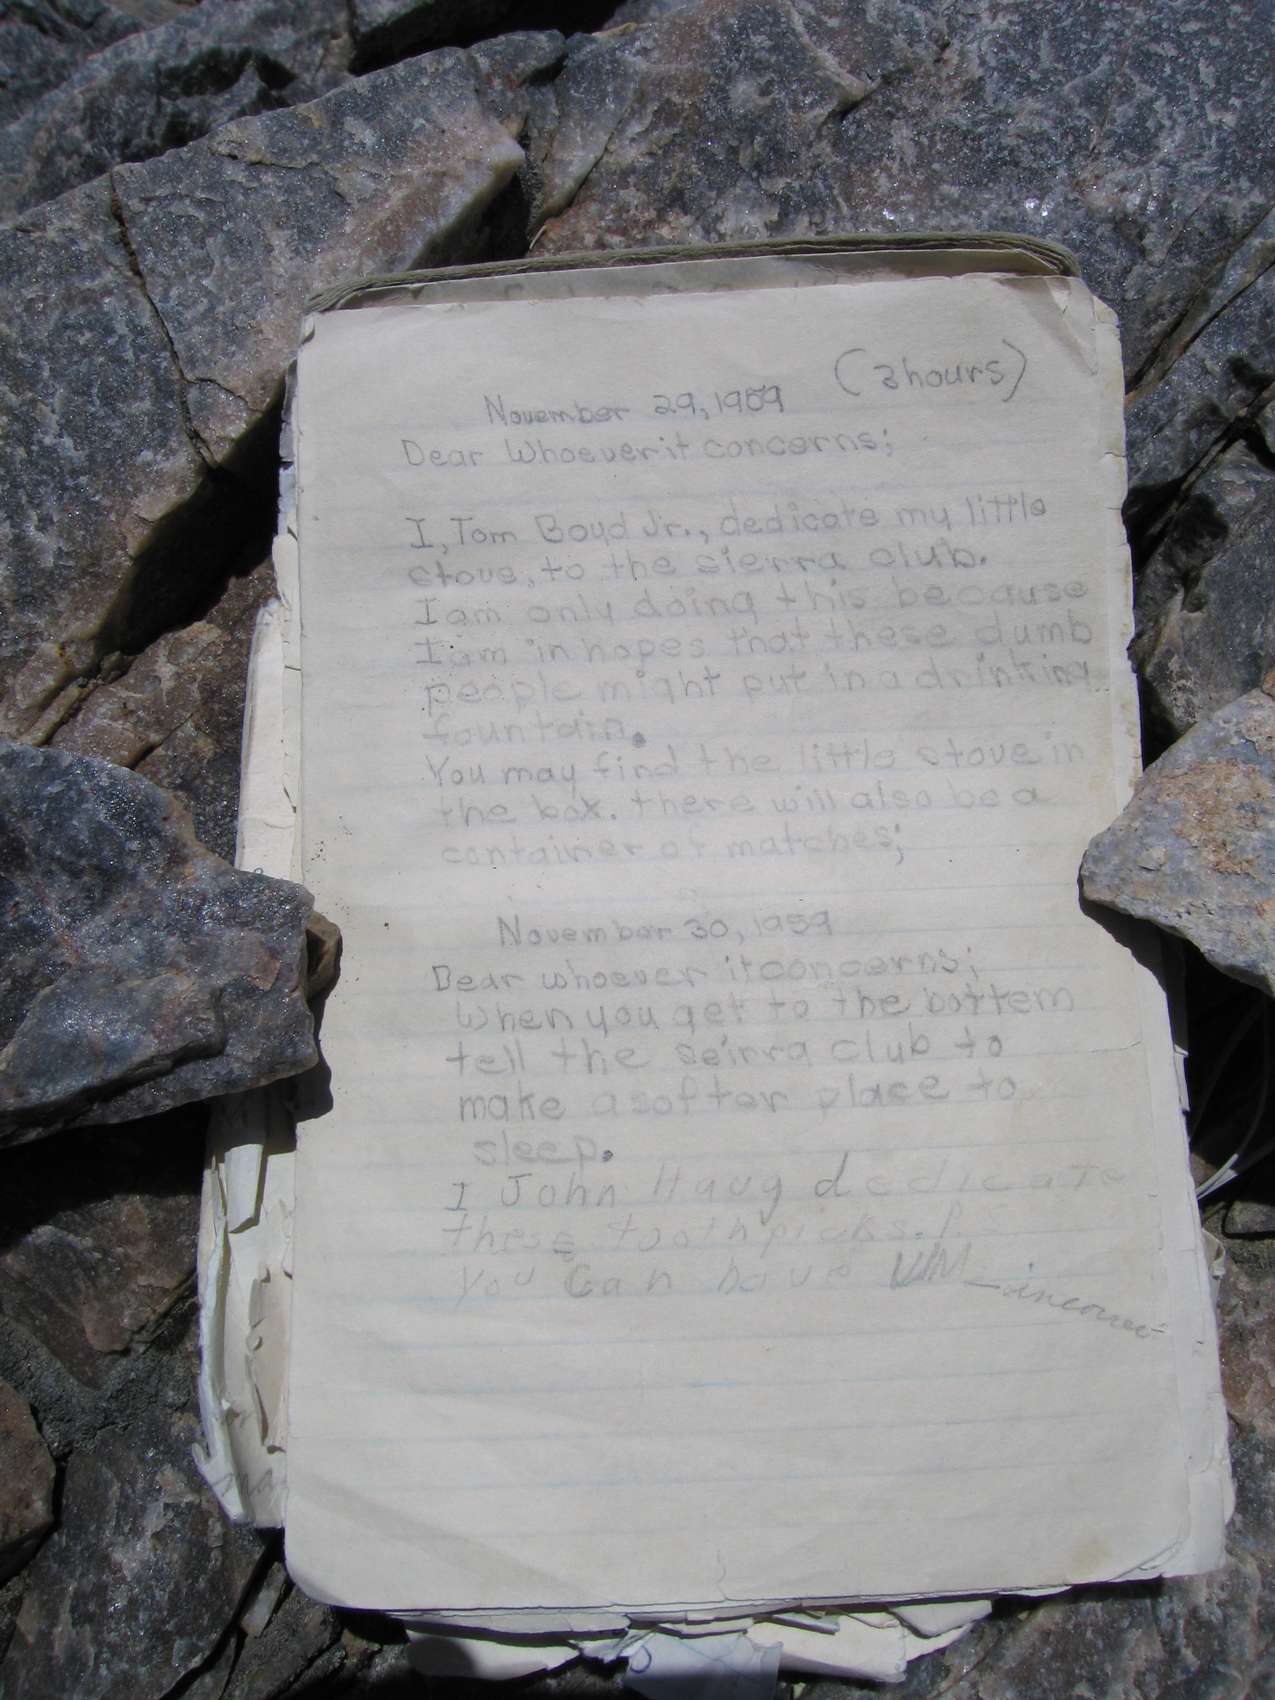 (3hours)
November 29, 1959
Dear Whoever it concerns;
I, Tom Boyd Jr., dedicate my little
stove, to the sierra club.
I am only doing this because
I am in hopes that these dumb
people might put in a drinking
fountain.
You may find the little stove in
the box. there will also be a
container of matches;
November 30, 1959
Dear whoever it concerns;
When you get to the bottem
tell the seirra club to
make a softer place to
sleep.
I John Haug dedicate
these toothpicks. P.S.
You can have